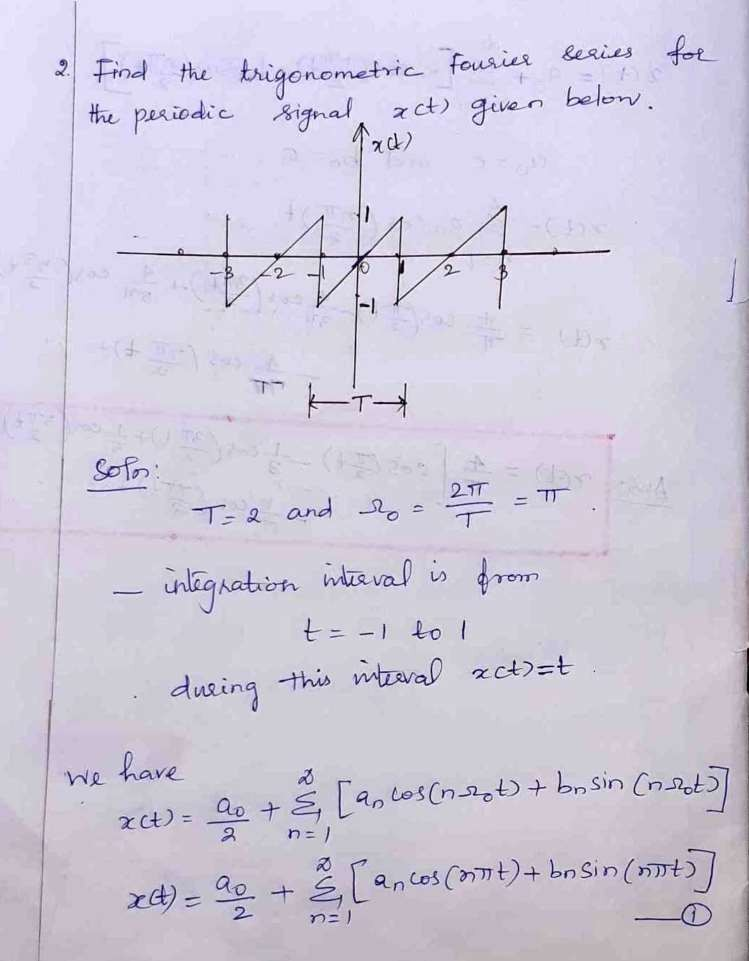 2. Find the trigonometric Fourier series for
the periodic signal x(t) given below.
x(t)
1
-3 -2 -1 0 1 2 3
-1
T
Soln:
T = 2 and Ω₀ = 2π/T = π.
— integration interval is from
t = -1 to 1
during this interval x(t)=t.
We have
x(t) = a₀/2 + Σ_{n=1}^{∞} [an cos(nΩ₀t) + bn sin(nΩ₀t)]
x(t) = a₀/2 + Σ_{n=1}^{∞} [an cos(nπt) + bn sin(nπt)]
—①